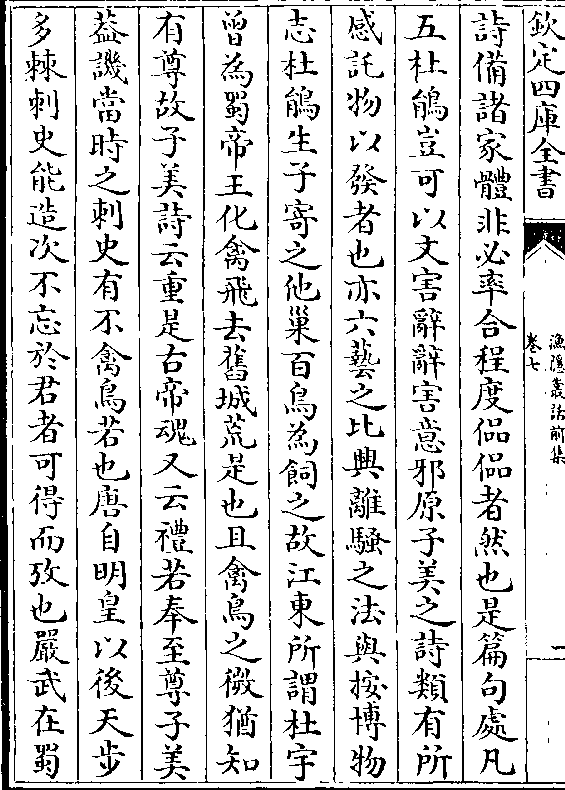 欽定四庫全書
漁隱叢話前集
卷七
二
詩備諸家體非必率合程度侃侃者然也是篇句處凡
五杜鵑豈可以文害辭辭害意邪原子美之詩類有所
感託物以發者也亦六藝之比興離騷之法與按博物
志杜鵑生子寄之他巢百鳥為飼之故江東所謂杜宇
曾為蜀帝王化禽飛去舊城荒是也且禽鳥之微猶知
有尊故子美詩云重是古帝魂又云禮若奉至尊子美
葢譏當時之刺史有不禽鳥若也唐自明皇以後天步
多棘刺史能造次不忘於君者可得而攷也嚴武在蜀